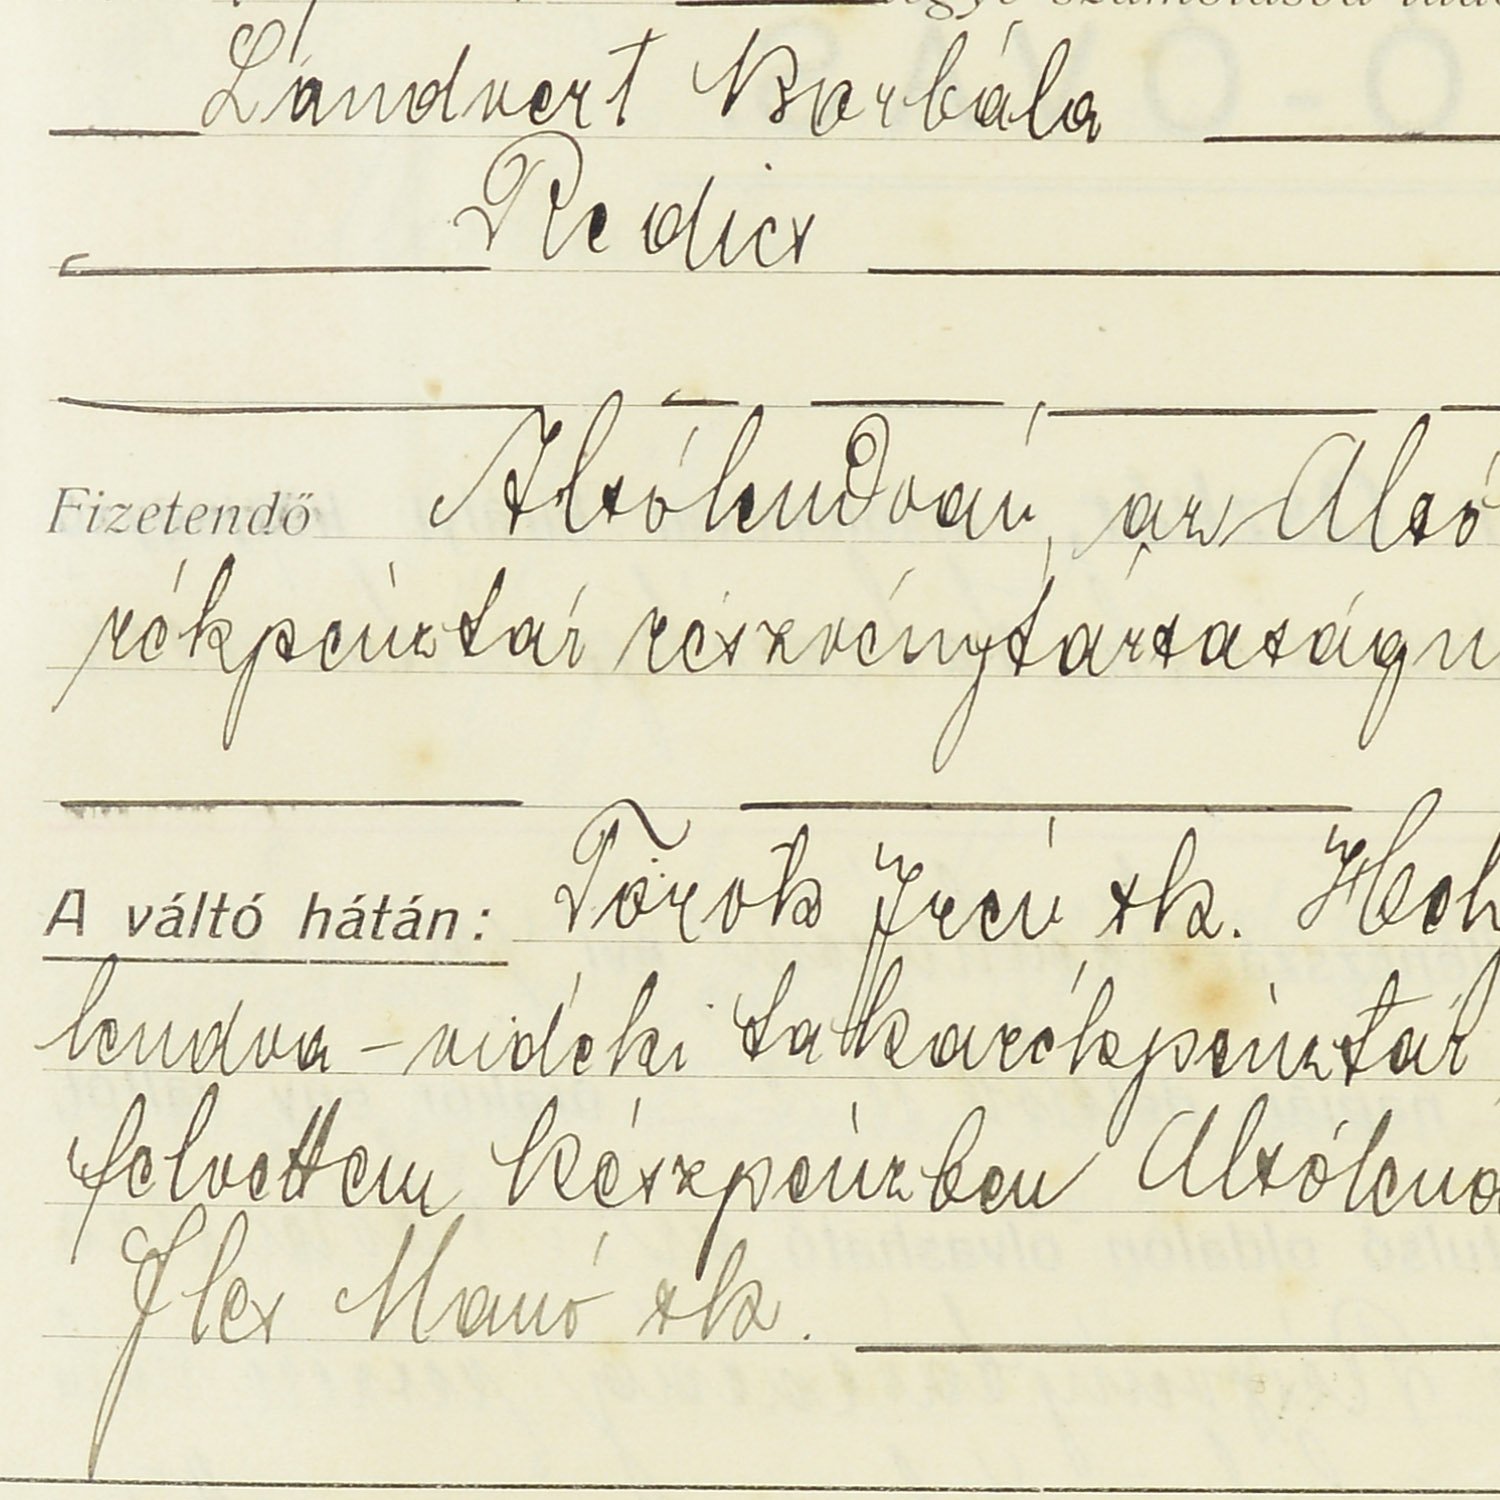 Landvert Borbála
Redics
Fizetendő Alsólendván, az Alsó
rékpénztár részvénytársaságn
A váltó hátán: Török Irén sk.
lendva-vidéki takarékpénztár
felvettem készpénzben Alsólend
Iles Manó sk.